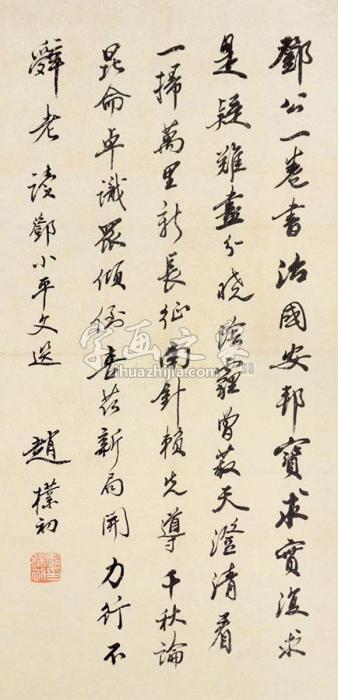 鄧公一卷書治國安邦寶求實復求
是疑難盡分曉陰霾曾蔽天澄清看
一掃萬里新長征南針賴先導千秋論
昆侖卓識眾傾倒喜茲新局開力行不
辭老讀鄧小平文選
趙樸初
字画之家
huazhijia.com